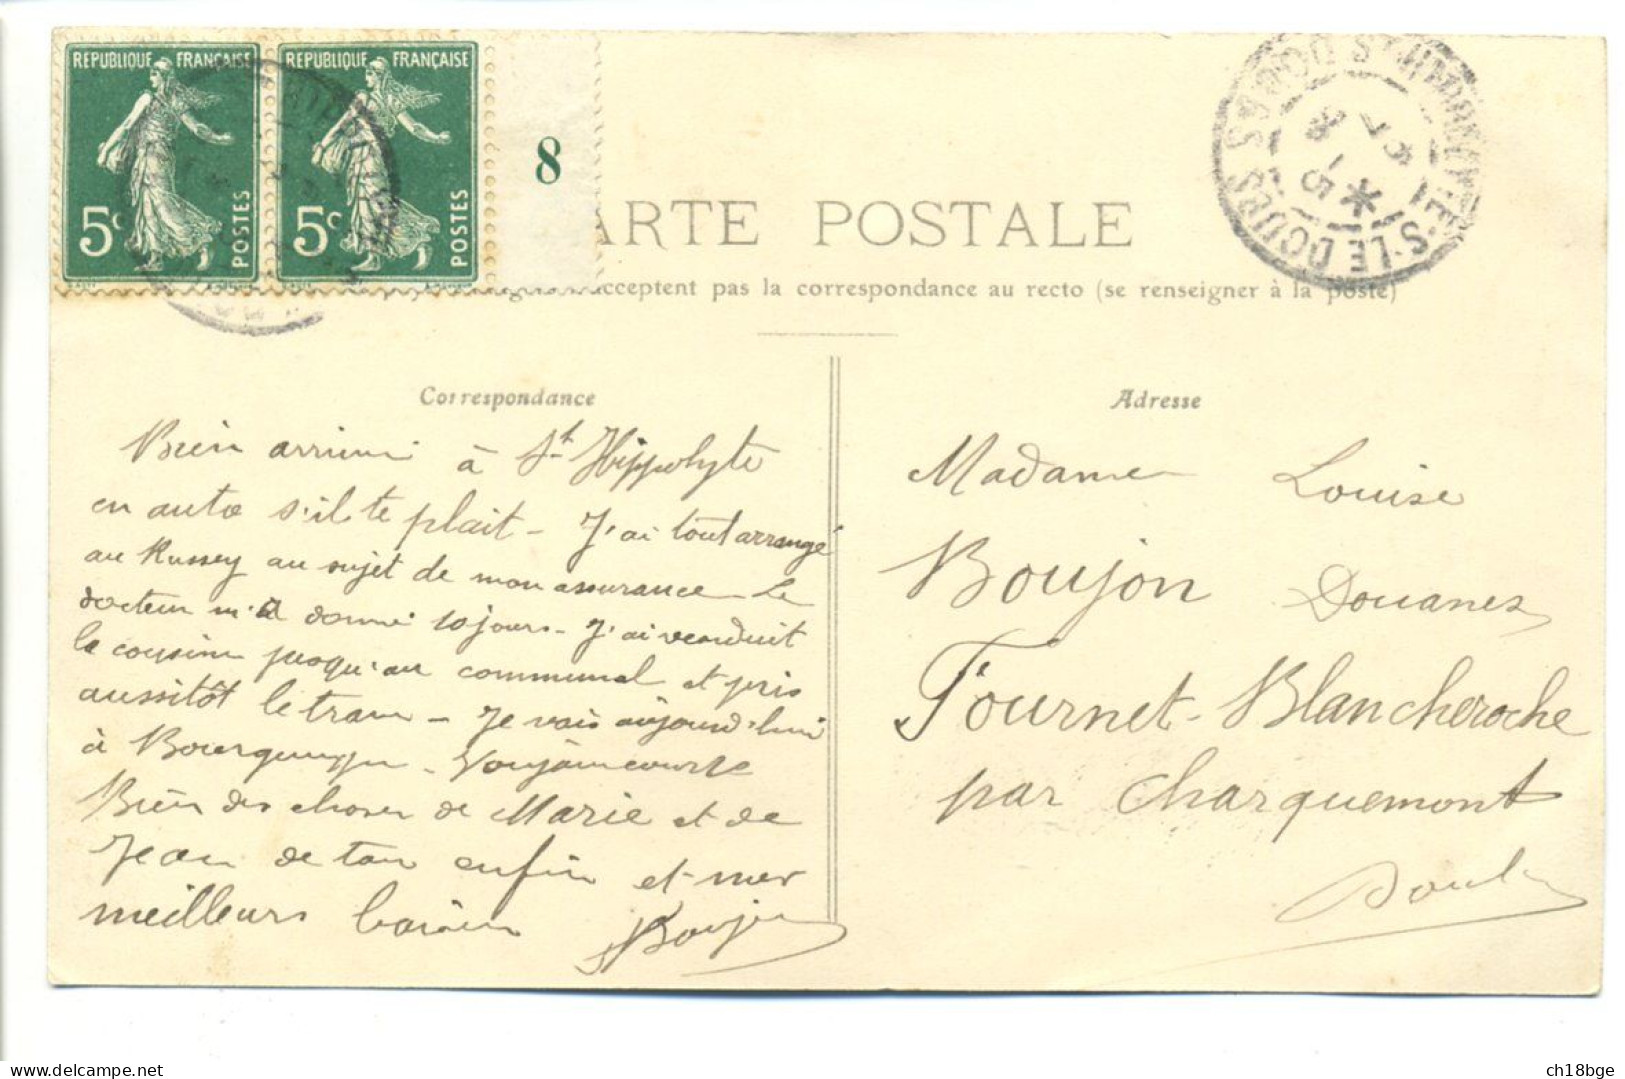 RÉPUBLIQUE FRANÇAISE
5c POSTES
RÉPUBLIQUE FRANÇAISE
5c POSTES
8
ST HIPPOLYTE-S-LE DOUBS DOUBS
ARTE POSTALE
acceptent pas la correspondance au recto (se renseigner à la poste)
Correspondance
Bien arrivé à St Hippolyte
en auto s'il te plait - J'ai tout arrangé
au Russey au sujet de mon assurance - Le
docteur m'a donné 10 jours - J'ai reconduit
le cousin jusqu'au communal et pris
aussitôt le tram - Je vais aujourd'hui
à
Bien des choses de Marie et de
Jean de ton enfin et mes
meilleurs baisers Boujon
Adresse
Madame Louise
Boujon Douanes
Fournet-Blancheroche
par Charquemont
Doubs
delcampe.net
ch18bge